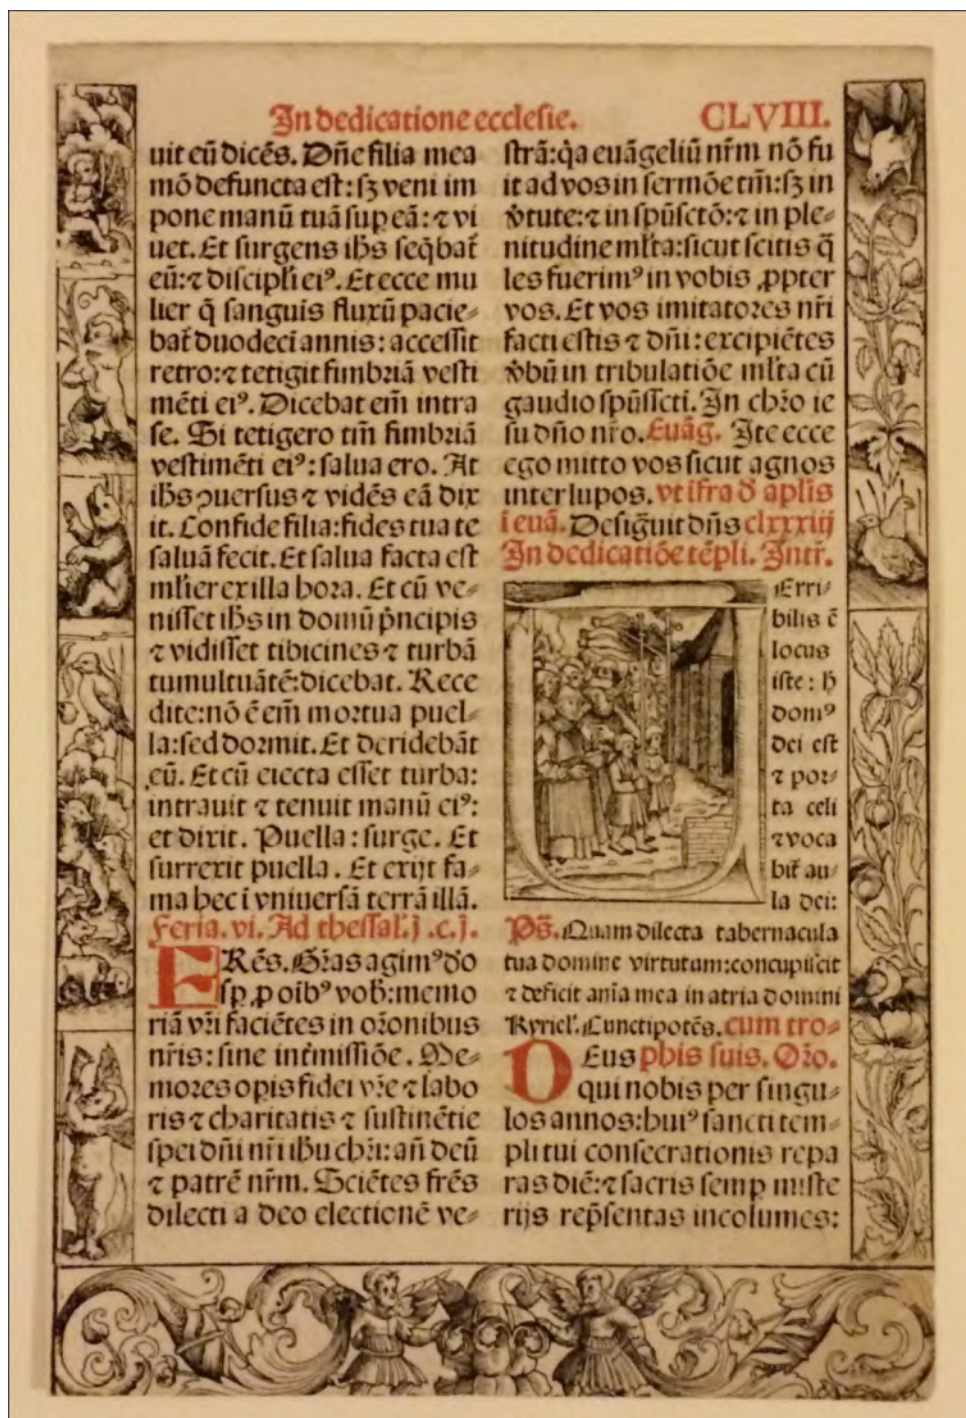 In dedicatione ecclesie. CLVIII.
uit eū dicēs. Dñe filia mea
mō defuncta est: sꝫ veni im
pone manū tuā suꝑ eā: ⁊ vi
uet. Et surgens ihs̄ seq̄bat̄
eū: ⁊ discipl̄i eiꝰ. Et ecce mu
lier q̄ sanguis fluxū pacie⸗
bat̄ duodeci annis: accessit
retro: ⁊ tetigit fimbriā vesti
mēti eiꝰ. Dicebat em̄ intra
se. Si tetigero tm̄ fimbriā
vestimēti eiꝰ: salua ero. At
ihs̄ ꝯuersus ⁊ vidēs eā dix
it. Confide filia: fides tua te
saluā fecit. Et salua facta est
ml̄ier ex illa hora. Et cū ve⸗
nisset ihs̄ in domū p̄ncipis
⁊ vidisset tibicines ⁊ turbā
tumultuātē: dicebat. Rece
dite: nō ē em̄ mortua puel⸗
la: sed dormit. Et deridebāt
eū. Et cū eiecta esset turba:
intrauit ⁊ tenuit manū eiꝰ:
et dixit. Puella: surge. Et
surrexit puella. Et exijt fa⸗
ma hec i vniuersā terrā illā.
Feria. vi. Ad thessal̄. j. c. j.
FRēs. Gr̄as agimꝰ dō
sꝑ ꝓ oībꝰ vob̄: memo
riā vr̄i faciētes in or̄onibus
nr̄is: sine int̄missiōe. Me⸗
mores oꝑis fidei vr̄e ⁊ labo
ris ⁊ charitatis ⁊ sustinētie
spei dn̄i nr̄i ihū chr̄i: an̄ deū
⁊ patrē nr̄m. Sciētes fr̄es
dilecti a deo electionē ve⸗
strā: q̇a euāgeliū nr̄m nō fu
it ad vos in sermōe tm̄: sꝫ in
v̓tute: ⁊ in spūsctō: ⁊ in ple⸗
nitudine ml̄ta: sicut scitis q̄
les fuerimꝰ in vobis ꝓpter
vos. Et vos imitatores nr̄i
facti estis ⁊ dn̄i: excipiētes
v̓bū in tribulatiōe ml̄ta cū
gaudio spūssc̄ti. In chr̄o ie
su dn̄o nr̄o. Euāg. Ite ecce
ego mitto vos sicut agnos
inter lupos. vt ifra d̓ apl̄is
i euā. Desig̃uit dn̄s clxxxiij
In dedicatiōe tēpli. Intr̄.
TErri⸗
bilis ē
locus
iste: h̄
domꝰ
dei est
⁊ por⸗
ta celi
⁊ voca
bit̄ au⸗
la dei:
Ps̄. Quam dilecta tabernacula
tua domine virtutum: concupiscit
⁊ deficit ani̅a mea in atria domini
Kyriel̄. Cunctipotēs. cum tro⸗
DEus phis suis. Or̄o.
qui nobis per singu⸗
los annos: huiꝰ sancti tem⸗
pli tui consecrationis repa
ras diē: ⁊ sacris semꝑ miste
rijs rep̄sentas incolumes: